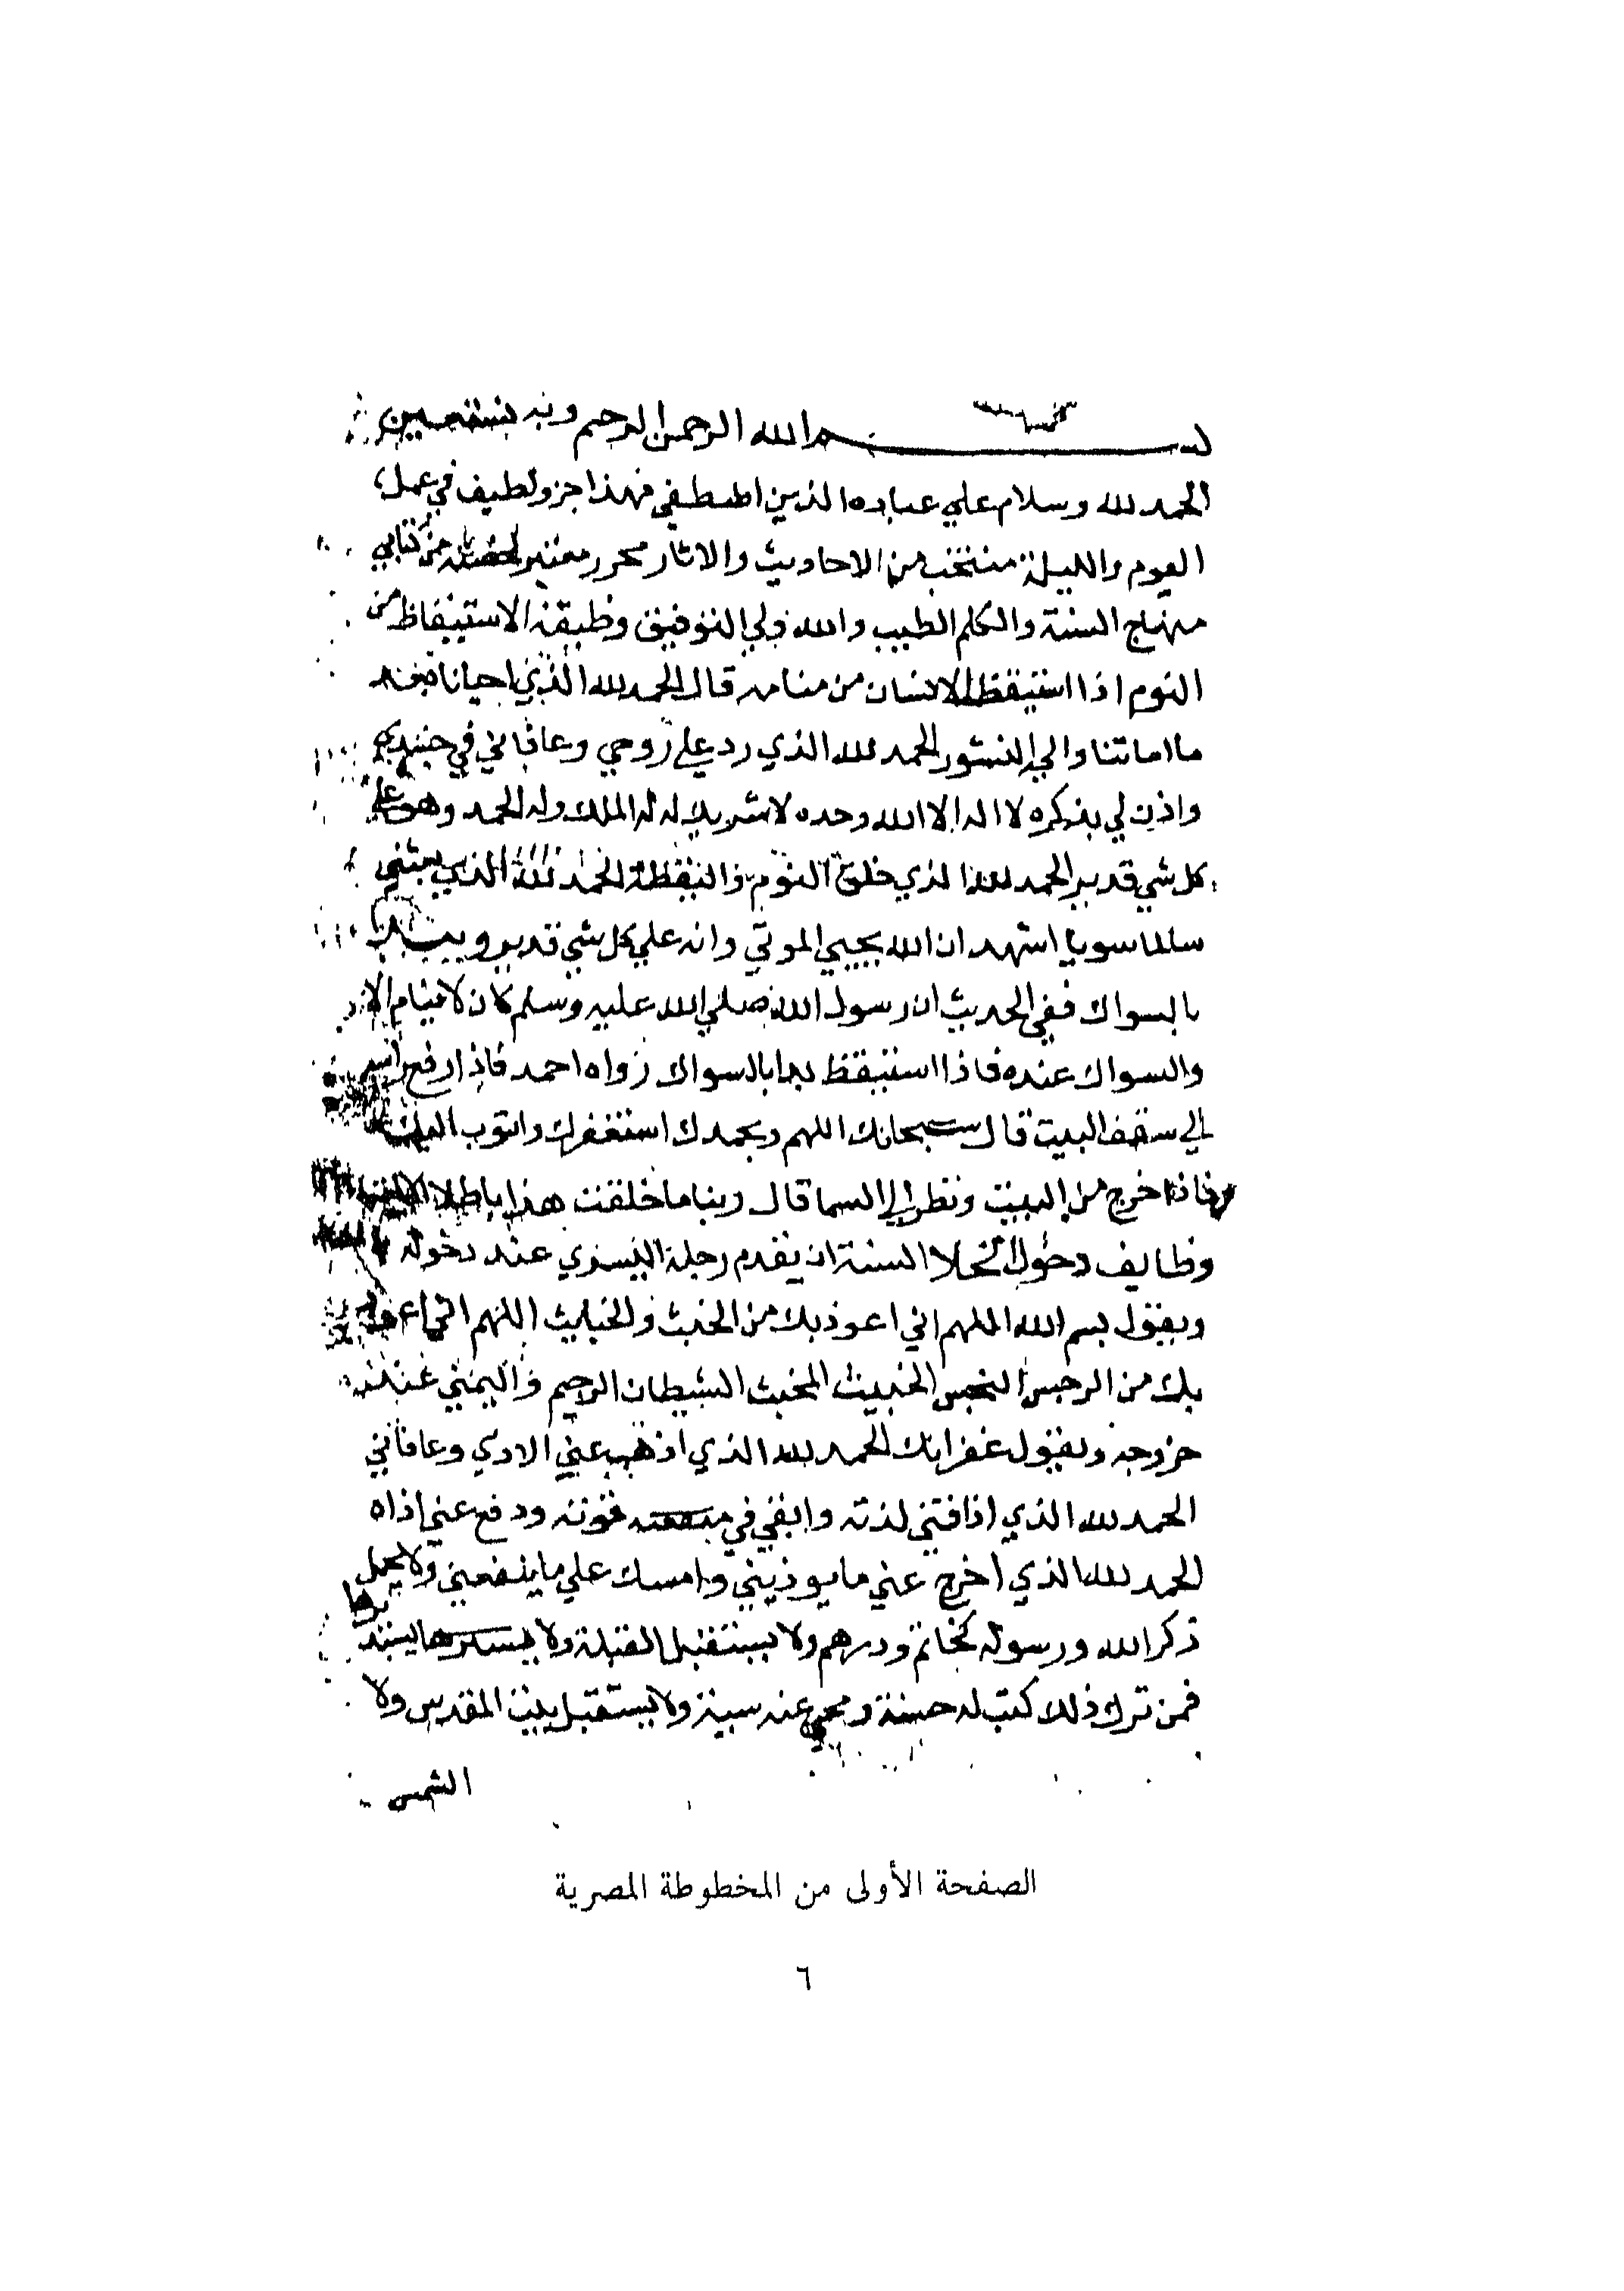 بسم الله الرحمن الرحيم وبه نستعين
الحمد لله وسلام علي عباده الذين اصطفي فهذا جزو لطيف في عمل
اليوم والليلة منتخب من الاحاديث والاثار محرر معتبر لخصته من كتابي
منهاج السنة والكلم الطيب والله ولي التوفيق وظيفة الاستيقاظ من
النوم اذا استيقظ الانسان من منامه قال الحمد لله الذي احيانا بعد
ما اماتنا واليه النشور الحمد لله الذي رد علي روحي وعافاني في جسدي
واذن لي بذكره لا اله الا الله وحده لا شريك له له الملك وله الحمد وهو علي
كل شي قدير الحمد لله الذي خلق النوم واليقظة الحمد لله الذي بعثني
سالما سويا اشهد ان الله يحيي الموتي وانه علي كل شي قدير
بالسواك ففي الحديث ان رسول الله صلي الله عليه وسلم كان لا ينام الا
والسواك عنده فاذا استيقظ بدا بالسواك رواه احمد فاذا رفع راسه
الي سقف البيت قال سبحانك اللهم وبحمدك استغفرك واتوب اليك
فاذا خرج من البيت ونظر الي السما قال ربنا ما خلقت هذا باطلا
وظايف دخول الخلا السنة ان يقدم رجله اليسري عند دخوله
ويقول بسم الله اللهم اني اعوذ بك من الخبث والخبايث اللهم اني اعوذ
بك من الرجس النجس الخبيث المخبث الشيطان الرجيم واليمني عند
خروجه ويقول غفرانك الحمد لله الذي اذهب عني الاذي وعافاني
الحمد لله الذي اذاقني لذته وابقي في منفعته قوته ودفع عني اذاه
الحمد لله الذي اخرج عني ما يوذيني وامسك علي ما ينفعني ولا يحمل
ذكر الله ورسوله كخاتم ودرهم ولا يستقبل القبلة ولا يستدبرها
فمن ترك ذلك كتب له حسنة ومحي عنه سيئة ولا يستقبل بيت المقدس ولا
الشمس
الصفحة الأولى من المخطوطة المصرية
٦